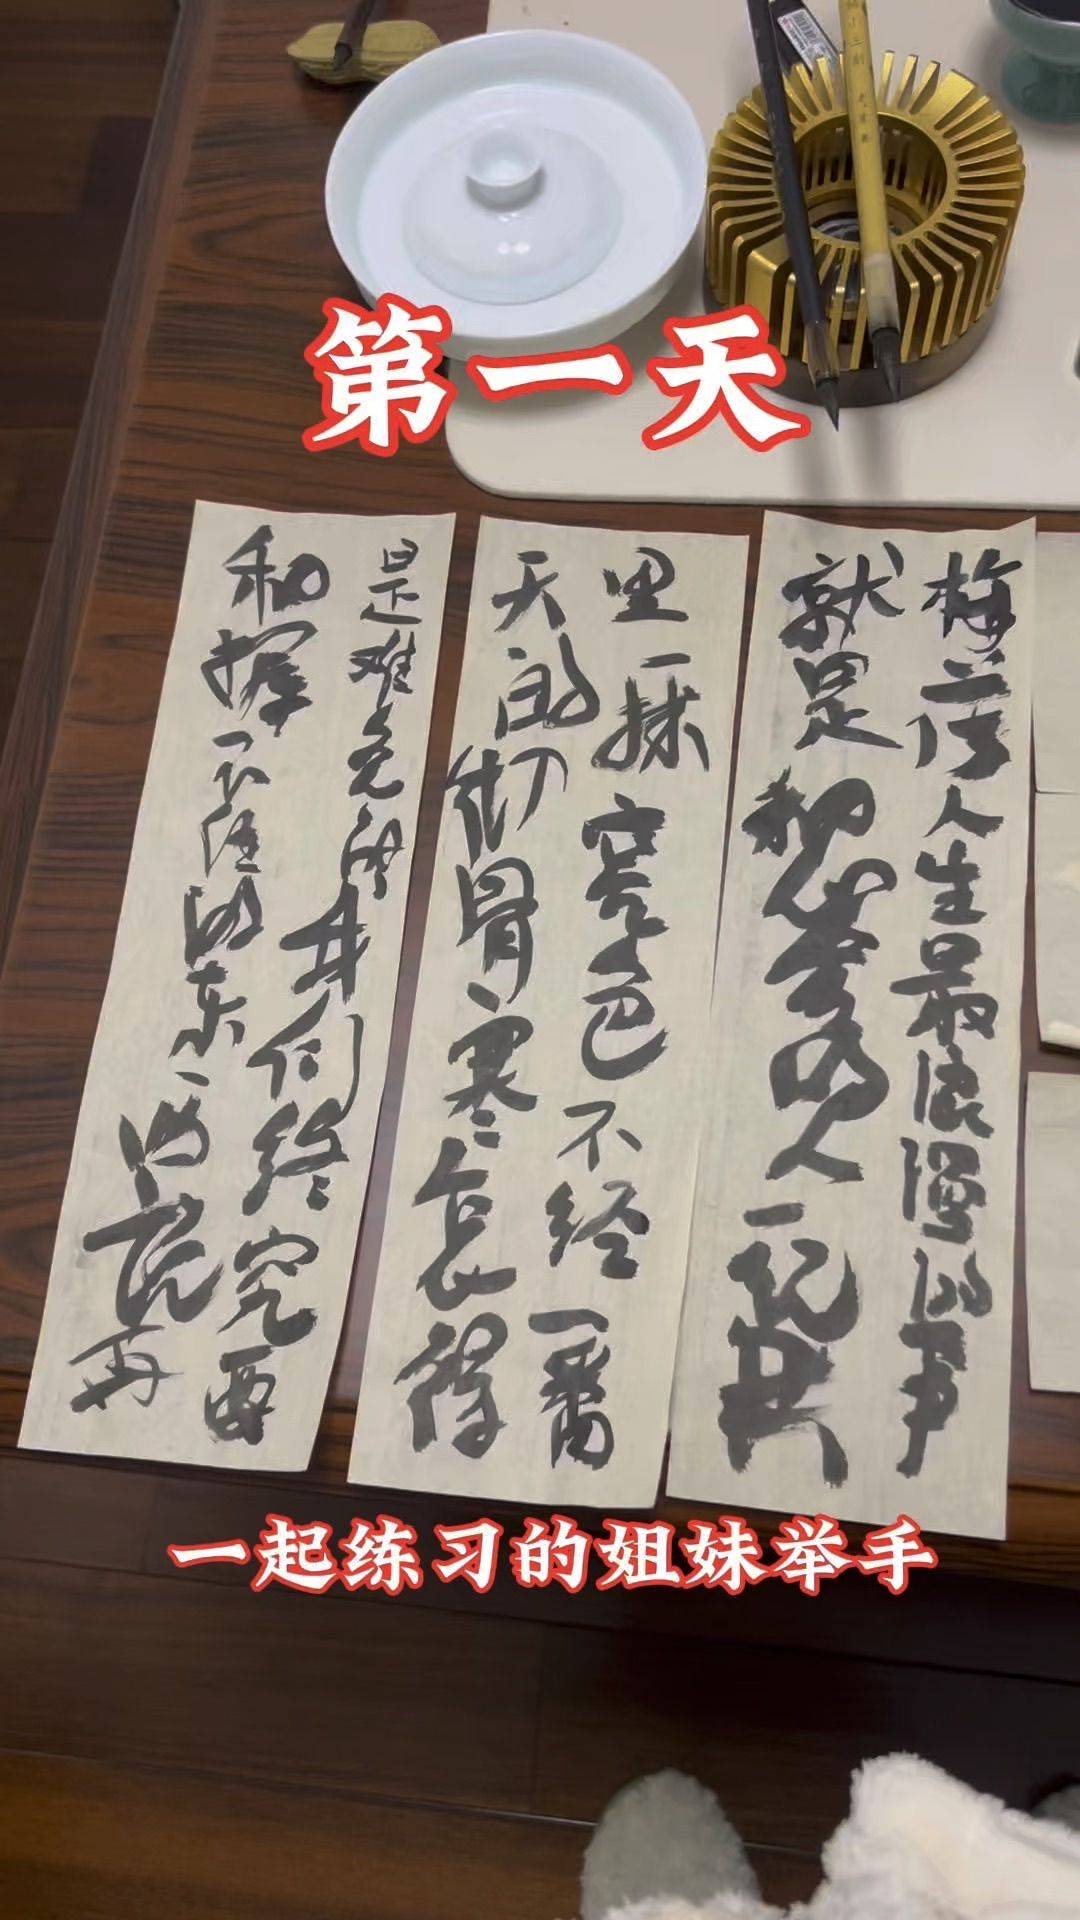 第一天
人生最浪漫的事
就是和心爱的人一起共
里一抹色不经一番
天的彻骨寒怎得
是难免的我们终究要
和握不住的东西说再
一起练习的姐妹举手